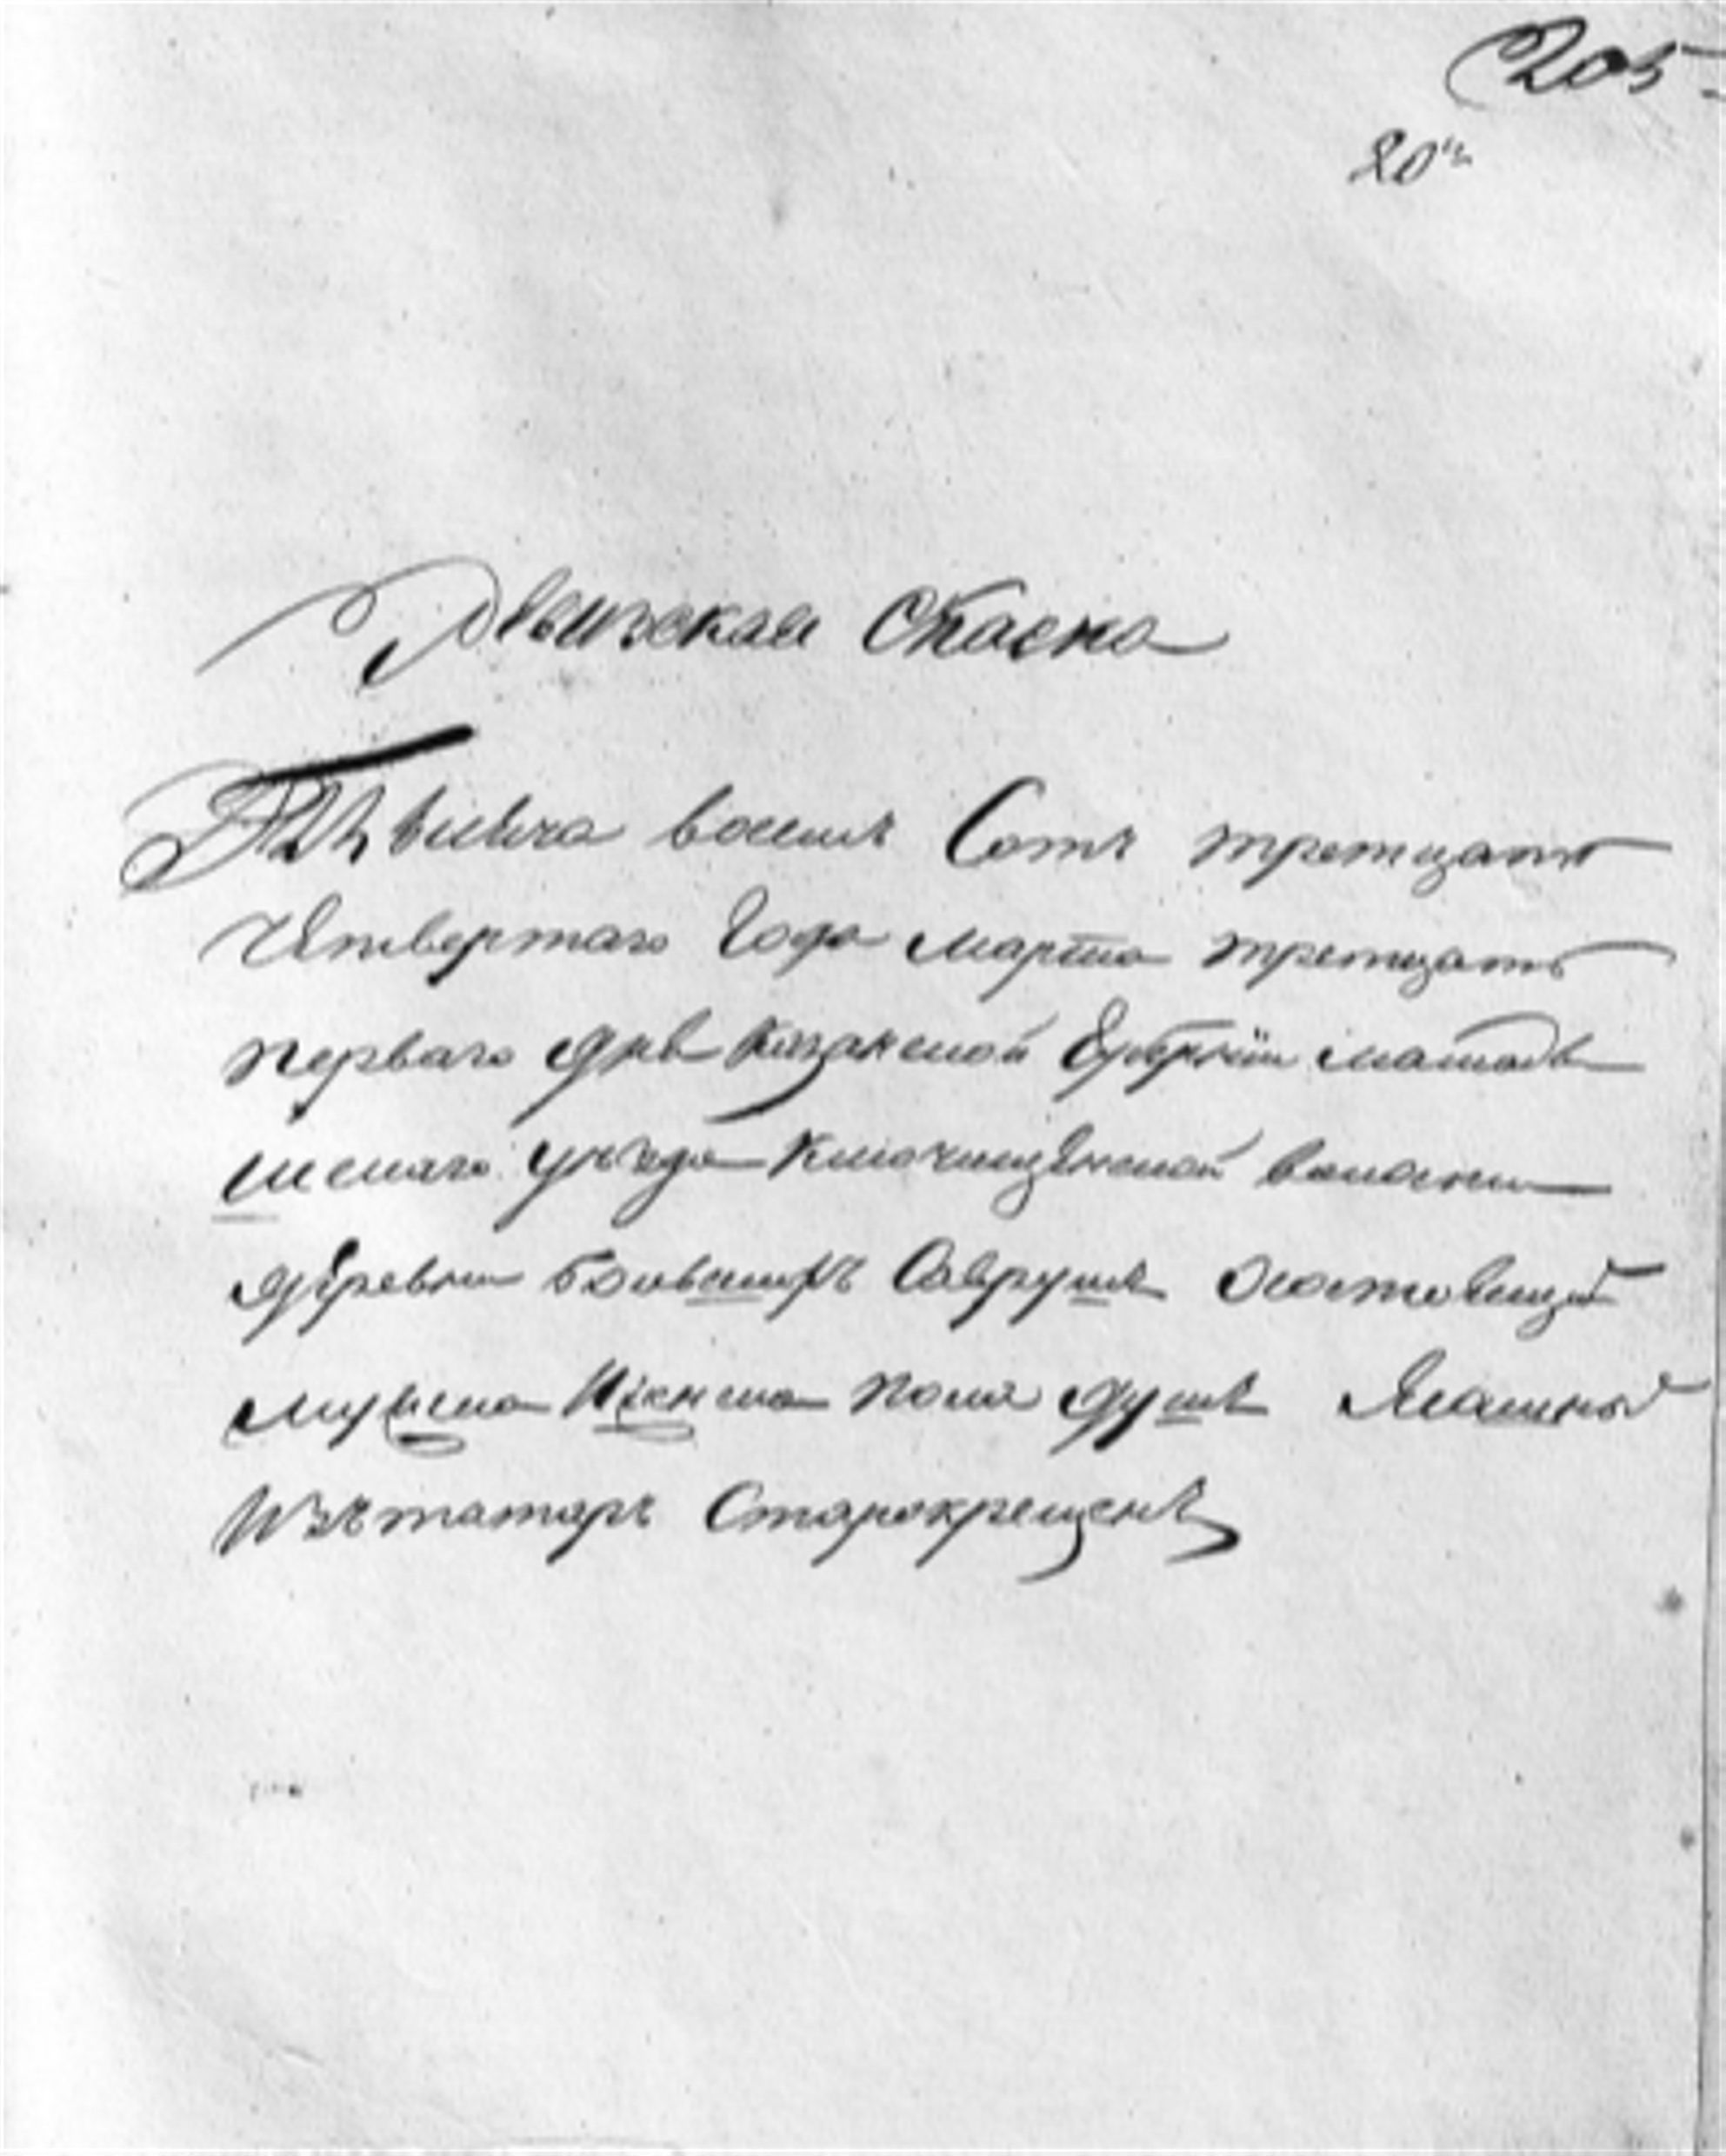 205
20
Ревижская Скаска
Тысяча восемь Сотъ третцать
Четвертаго Года марта третцать
перваго дня Казанской Губернии мамады
шскаго уезда Ключищенской волости
деревни Саврушъ Состоящей
мужска Женска пола душъ Ясашныхъ
Изъ татаръ Старокрещенъ